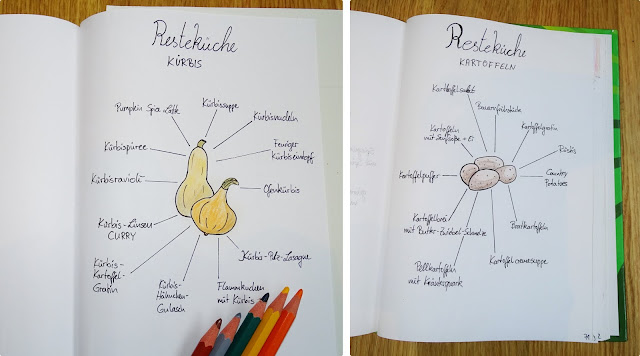 Resteküche
KÜRBIS
Pumpkin Spice Latte
Kürbissuppe
Kürbisnudeln
Kürbispüree
Feuriger
Kürbiseintopf
Kürbisravioli
Ofenkürbis
Kürbis-Linsen-
CURRY
Kürbis-Pilz-Lasagne
Kürbis-
Kartoffel-
Gratin
Kürbis-
Hähnchen-
Gulasch
Flammkuchen
mit Kürbis
Resteküche
KARTOFFELN
Kartoffelsalat
Bauernfrühstück
Kartoffelgratin
Kartoffeln
mit Senfsoße + Ei
Röstis
Kartoffelpuffer
Country
Potatoes
Kartoffelbrei
mit Butter-Zwiebel-Schmelze
Bratkartoffeln
Kartoffelcremesuppe
Pellkartoffeln
mit Kräuterquark